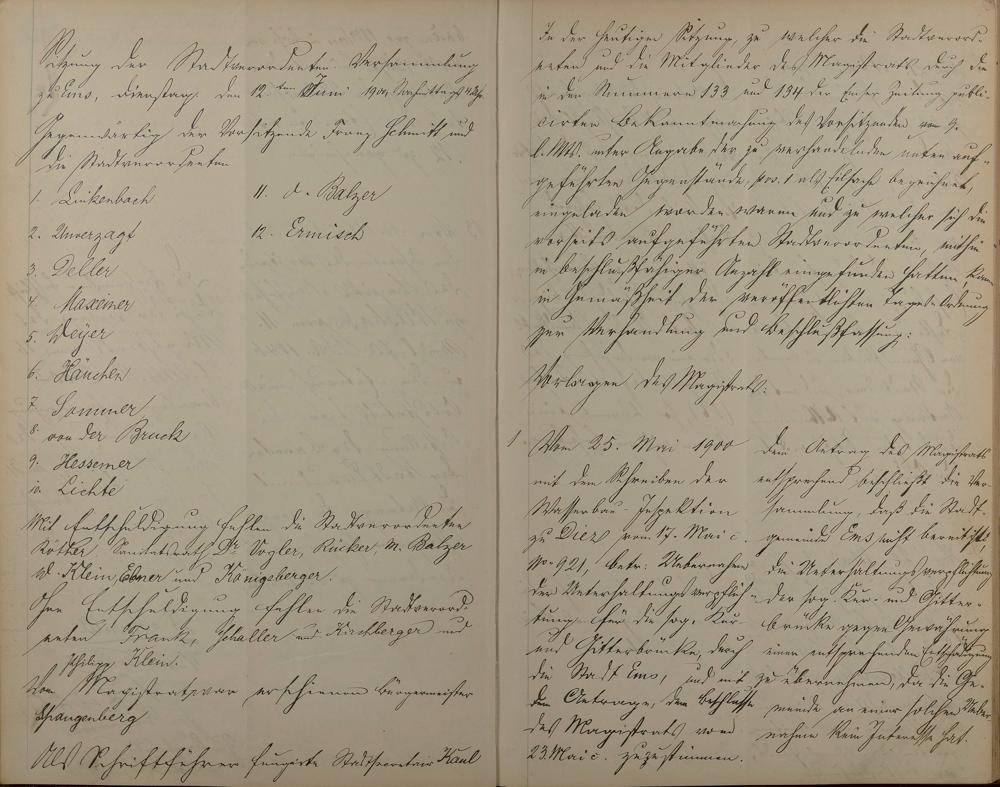 Sitzung der Stadtverordneten-Versammlung
zu Ems, Dienstag den 12ten Juni 1900, Nachmittags 4 Uhr.
Gegenwärtig der Vorsitzende Franz Schmitt und
die Stadtverordneten
1. Linkenbach
2. Unverzagt
3. Deller
4. Maxeiner
5. Weyer
6. Häuchen
7. Sommer
8. von der Bruck
9. Hessemer
10. Lichte
11. A. Balzer
12. Ermisch
Mit Entschuldigung fehlen die Stadtverordneten
Röther, Sanitätsrath Dr. Vogler, Rücker, M. Balzer
W. Klein, Ebner und Königsberger.
Ohne Entschuldigung fehlen die Stadtverord-
neten Frank, Schaller und Kirchberger und
Philipp Klein.
Vom Magistrat war erschienen Bürgermeister
Spangenberg
Als Schriftführer fungirte Stadtsecretair Kaul
In der heutigen Sitzung, zu welcher die Stadtverord-
neten und die Mitglieder des Magistrats durch die
in den Nummern 133 und 134 der Emser Zeitung publi-
cirten Bekanntmachung des Vorsitzenden vom 9.
l. Mts. unter Angabe der zu verhandelnden unten auf-
geführten Gegenstände, pos. 1 als Eilsache bezeichnet,
eingeladen worden waren und zu welcher sich die
vorseits aufgeführten Stadtverordneten, mithin
in beschlußfähiger Anzahl eingefunden hatten, kam
in Gemäßheit der veröffentlichten Tages-Ordnung
zur Verhandlung und Beschlußfassung:
Vorlagen des Magistrats.
1 Vom 25. Mai 1900
mit dem Schreiben der
Wasserbau-Inspektion
zu Diez vom 17. Mai c.
No 921, betr. Uebernahme
der Unterhaltungsverpflich-
tung für die sog. Kur-
und Gitterbrücke, durch
die Stadt Ems, und mit
dem Antrage, dem Beschlusse
des Magistrats vom
23. Mai c. zuzustimmen.
Dem Antrag des Magistrats
entsprechend beschließt die Ver-
sammlung, daß die Stadt-
gemeinde Ems nicht bereit ist,
die Unterhaltungsverpflichtung
der sog. Kur- und Gitter-
brücke gegen Gewährung
einer entsprechenden Entschädigung
zu übernehmen, da die Ge-
meinde an einer solchen Ueber-
nahme kein Interesse hat.